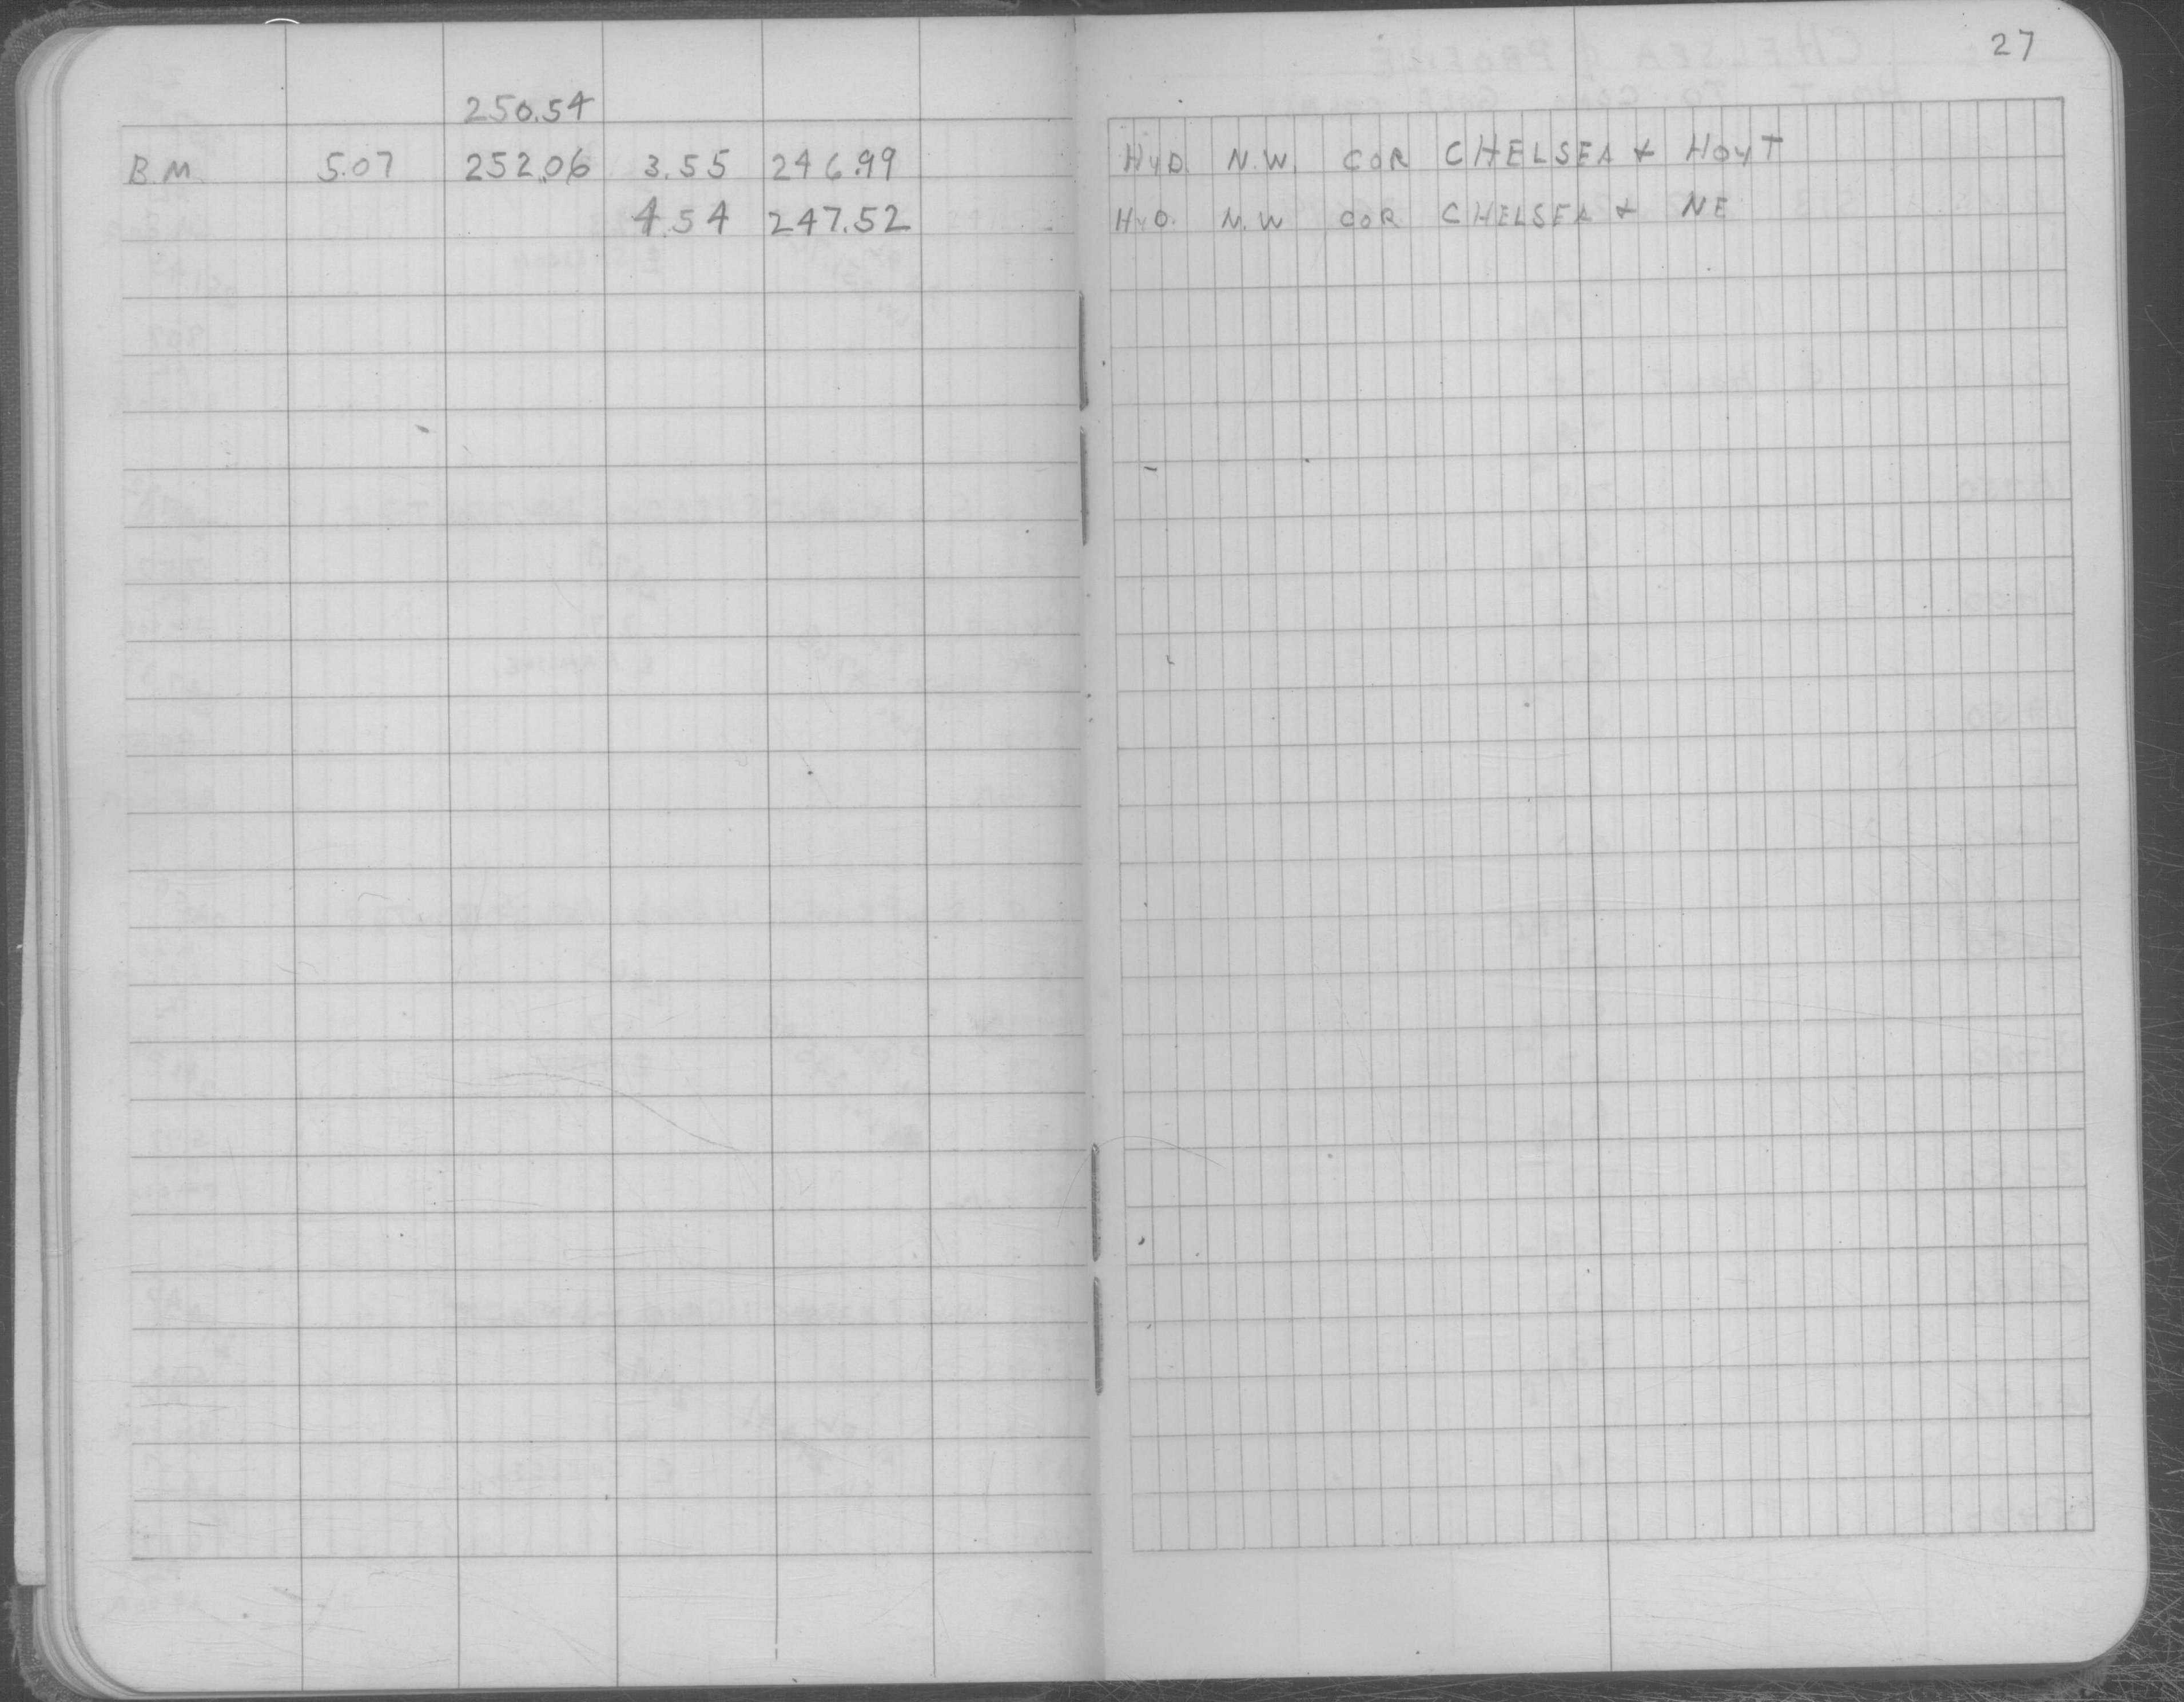 27
250.54
B.M. 5.07 252.06 3.55 246.99 HYD. N.W. COR CHELSEA & HOYT
4.54 247.52 HYD. N.W COR CHELSEA & NE